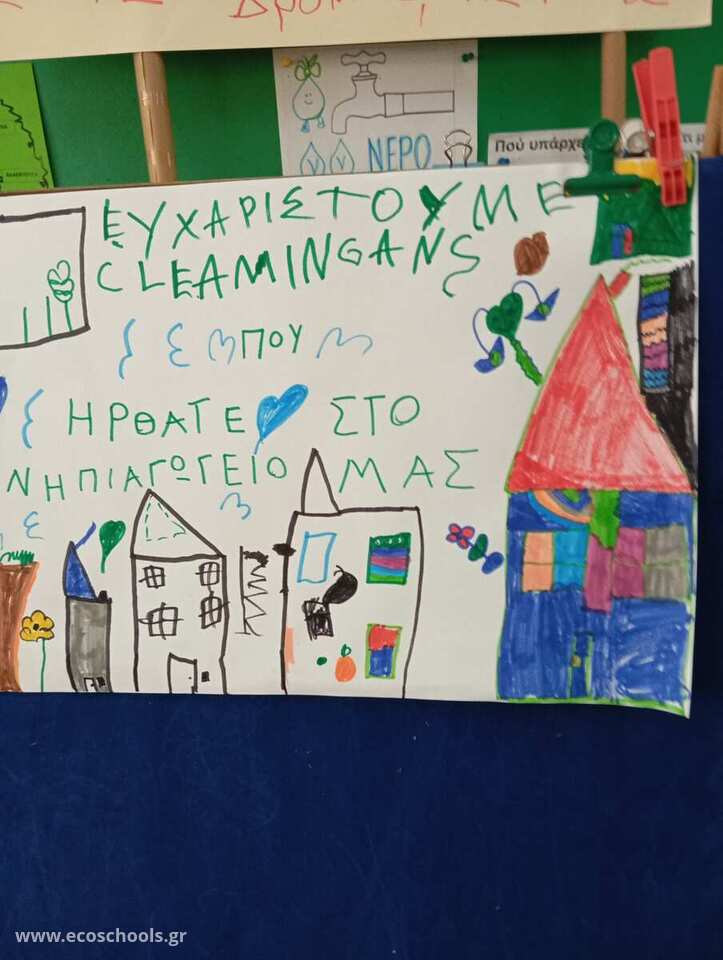 ΝΕΡΟ
Πού υπάρχε
ΕΥΧΑΡΙΣΤΟΥΜΕ
CLEAMINGANS
ΠΟΥ
ΗΡΘΑΤΕ ΣΤΟ
ΝΗΠΙΑΓΩΓΕΙΟ ΜΑΣ
www.ecoschools.gr